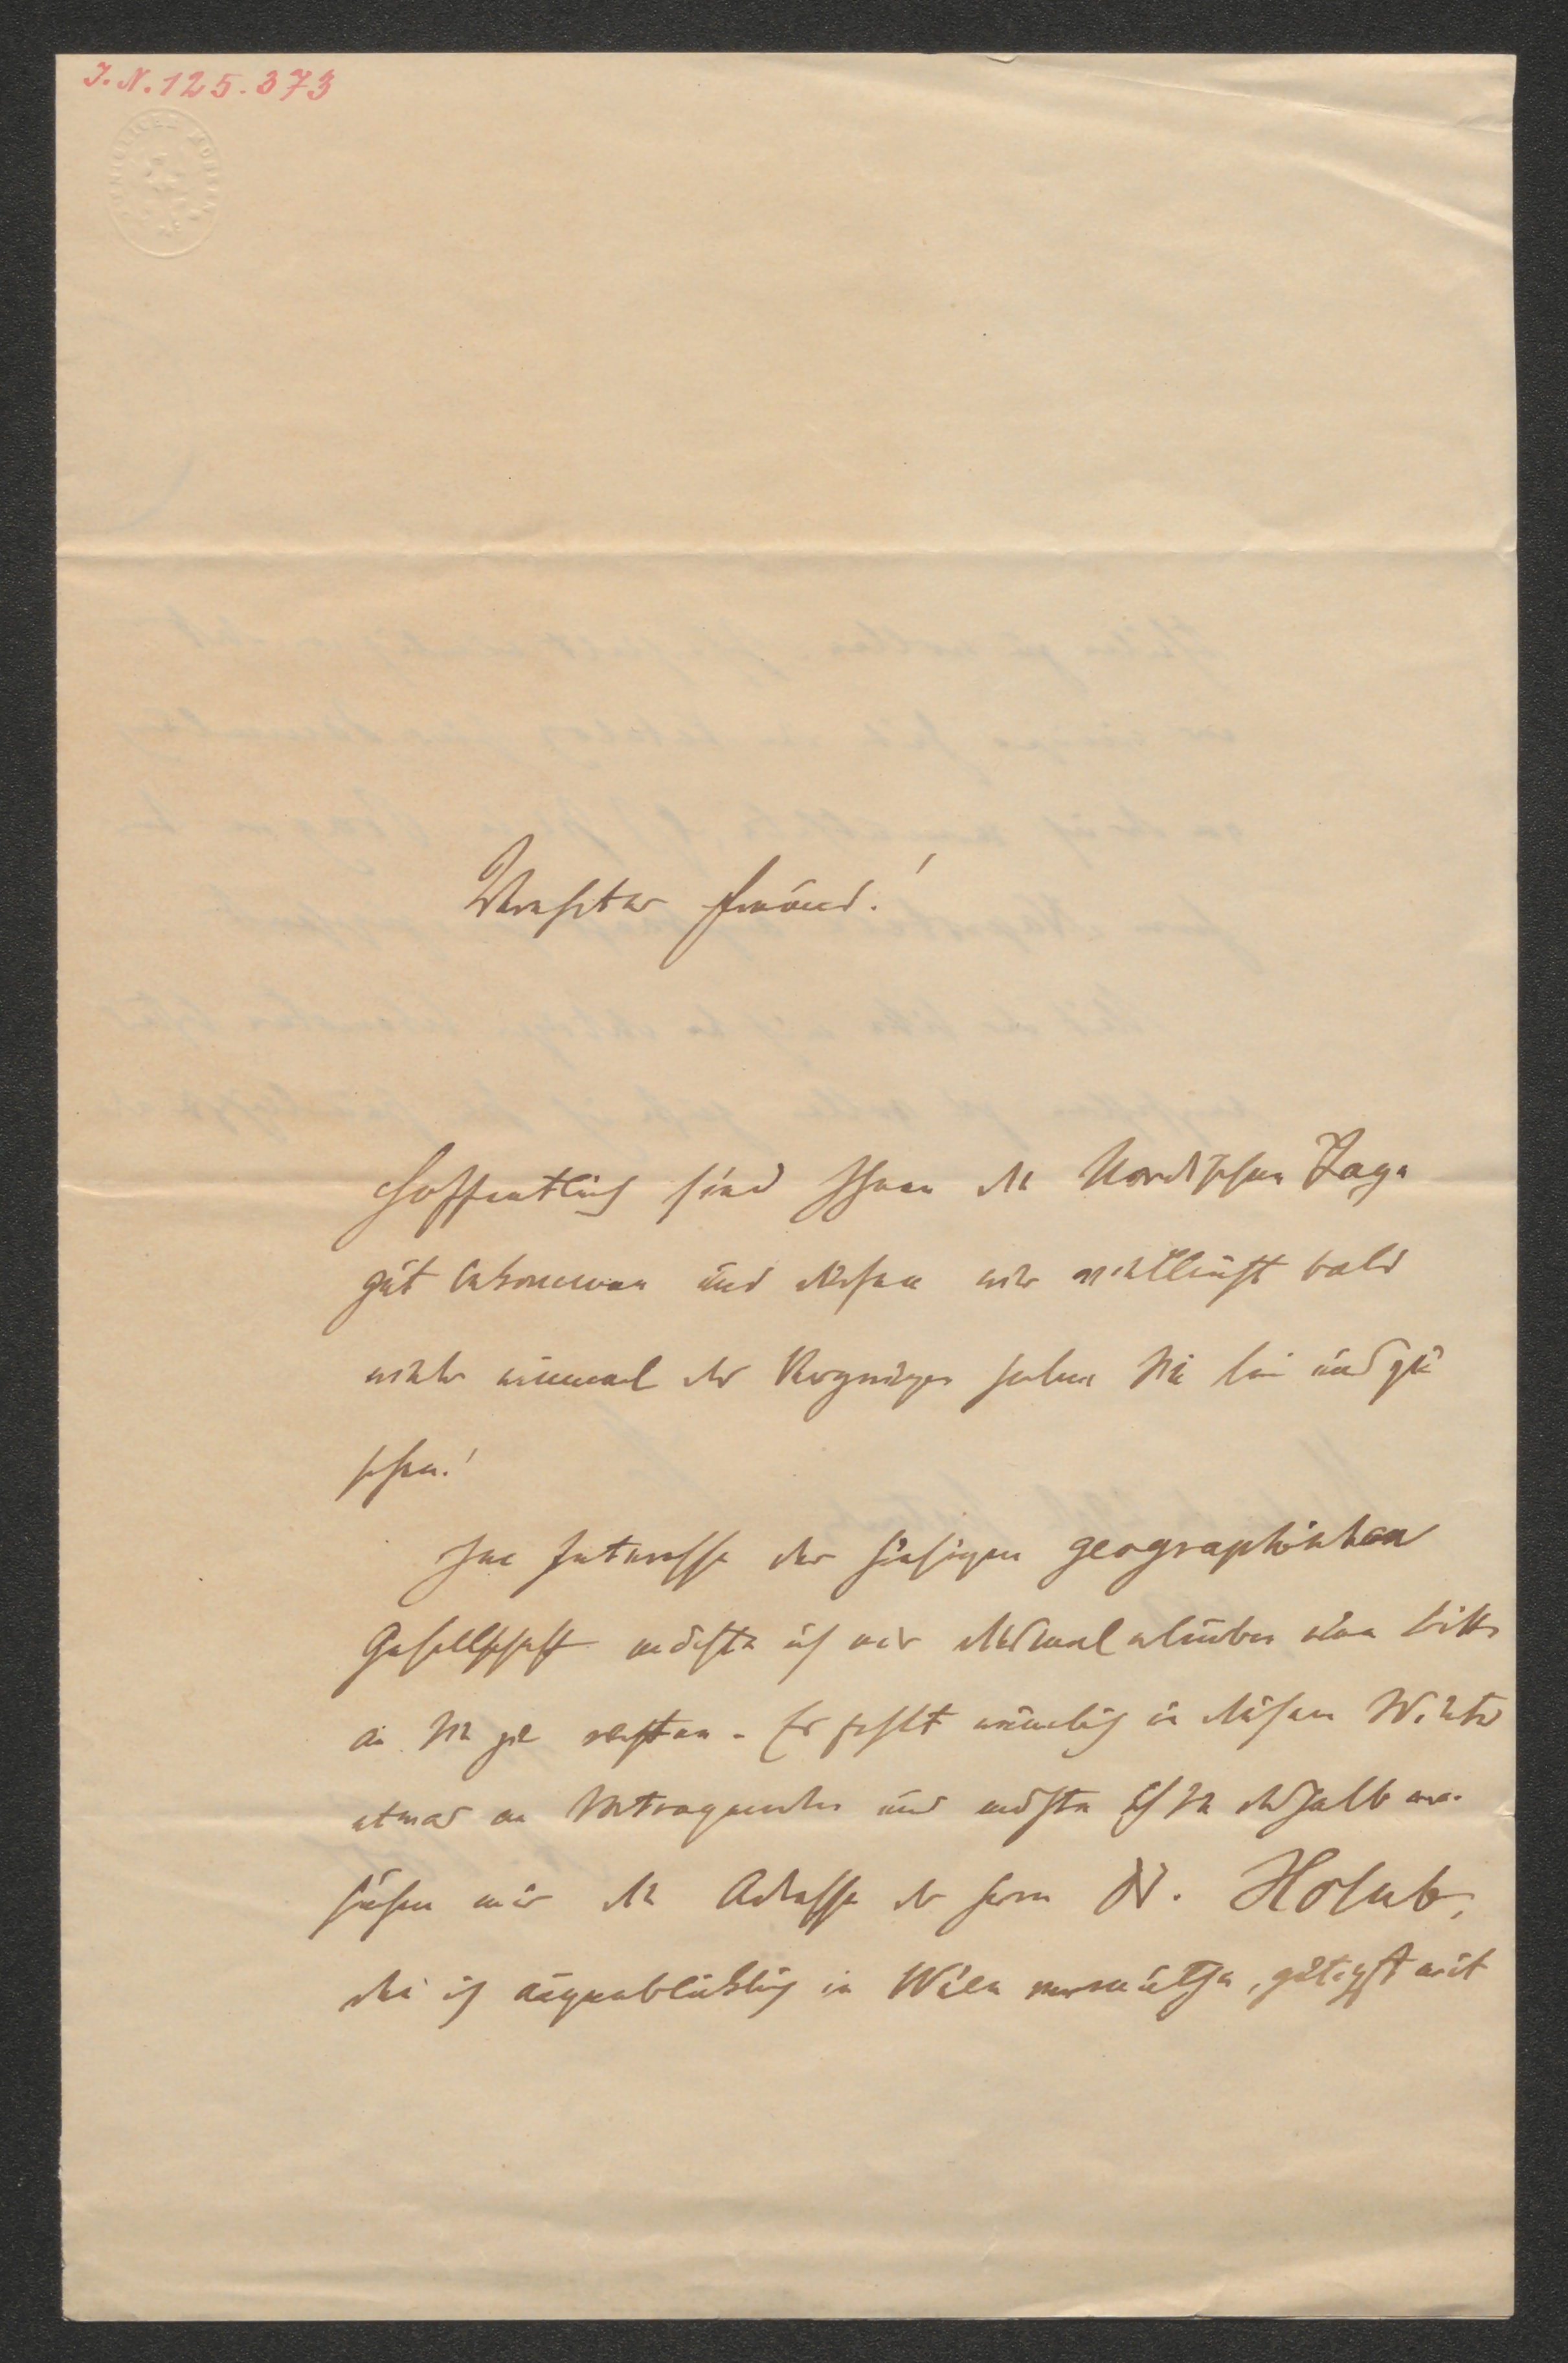 J. N. 125.373
Verehrter Freund!
Hoffentlich sind Ihnen die Nordischen Tage
gut bekommen und dürfen wir vielleicht bald
wieder einmal das Vergnügen haben Sie bei uns zu
sehen!
Im Interesse der hiesigen geographischen
Gesellschaft möchte ich mir diesmal erlauben eine Bitte
an Sie zu richten. Es fehlt nämlich in diesem Winter
etwas an Vortragenden und möchte ich Sie deshalb er-
suchen mir die Adresse des Herrn Dr. Holub,
den ich augenblicklich in Wien vermuthe, gütigst mit